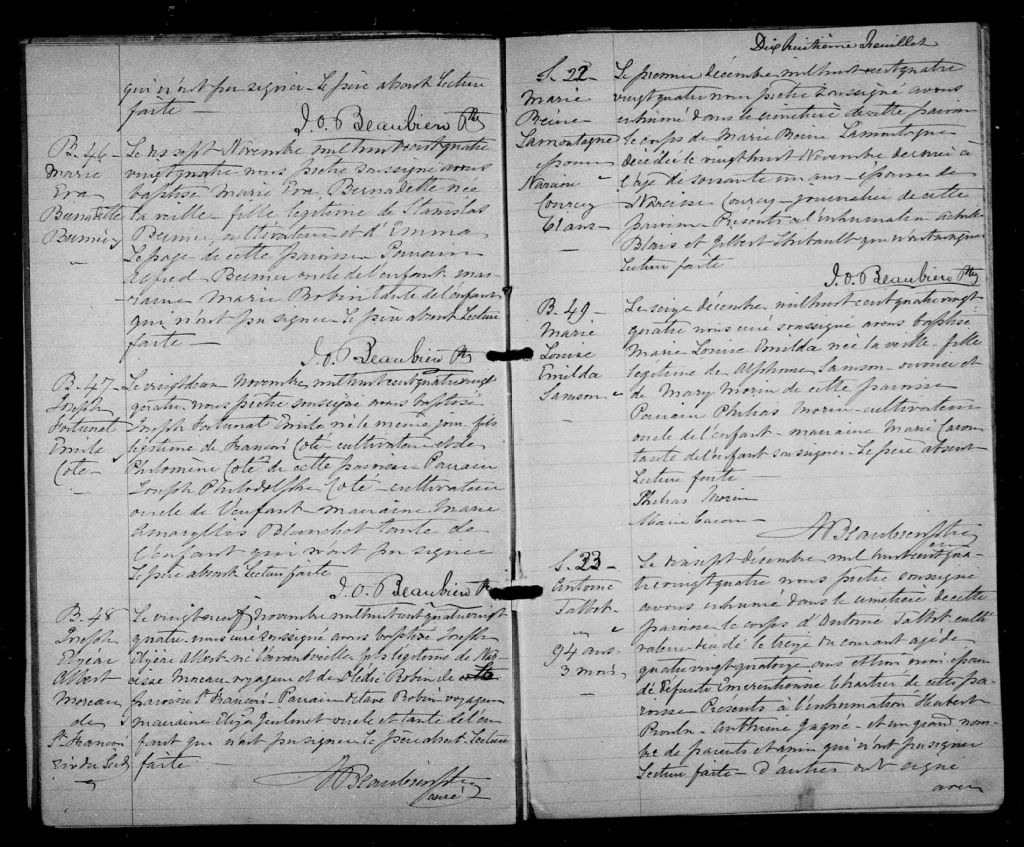 qui n'ont pu signer. Le père absent Lecture
faite —
J. O. Beaubien Ptre
B. 46 —
Marie
Eva
Bernadette
Bernier
Le dix sept Novembre mil huit cent quatre
vingt quatre nous prêtre soussigné avons
baptisé Marie Eva Bernadette née
la veille fille légitime de Stanislas
Bernier, cultivateur et d'Emma
Lepage de cette paroisse Parrain
Alfred Bernier oncle de l'enfant mar-
raine Marie Bobin tante de l'enfant
qui n'ont pu signer Le père absent Lecture
faite —
J. O. Beaubien Ptre
B. 47 —
Joseph
Fortunat
Emile
Coté —
Le vingt deux Novembre mil huit cent quatre vingt
quatre nous prêtre soussigné avons baptisé
Joseph Fortunat Emile né le même jour fils
légitime de François Coté cultivateur et de
Philomène Coté de cette paroisse Parrain
Joseph Coté cultivateur
oncle de l'enfant marraine Marie
Amaryllis Blanchet tante de
l'enfant qui n'ont pu signer
Le père absent Lecture faite
J. O. Beaubien Ptre
B. 48
Joseph
Elzéar
Albert
Moreau
de
St. François
Riv du Sud
Le vingt neuf Novembre mil huit cent quatre vingt
quatre nous curé soussigné avons baptisé Joseph
Elzéar Albert né l'avant veille fils légitime de Nar
cisse Moreau voyageur et de Bobin de
paroisse St. François Parrain Octave Bobin voyageur
marraine Eliza oncle et tante de l'en
fant qui n'ont pu signer le père absent Lecture
faite —
Beaubien Ptre
curé
Dix huitième Feuillet
S. 22 —
Marie
Reine
Lamontagne
épouse
Narcisse
Courcy
61 ans —
Le premier décembre mil huit cent quatre
vingt quatre nous prêtre soussigné avons
inhumé dans le cimetière de cette paroisse
le corps de Marie Reine Lamontagne
décédée le vingt huit Novembre dernier à
l'âge de soixante un ans — épouse de
Narcisse Courcy — journalier de cette
paroisse — Présents à l'inhumation
Blais et Gilbert Thibault qui n'ont pu signer
Lecture faite
J. O. Beaubien Ptre
B. 49 —
Marie
Louise
Emilda
Samson
Le seize décembre mil huit cent quatre vingt
quatre nous curé soussigné avons baptisé
Marie Louise Emilda née la veille — fille
légitime de Alphonse Samson et
de Mary Morin de cette paroisse
Parrain Philéas Morin — cultivateur
oncle de l'enfant — marraine Marie Caron
tante de l'enfant soussignés — Le père absent
Lecture faite
Philéas Morin
Marie Caron —
Beaubien Ptre
S. 23 —
Antoine
Talbot —
94 ans —
3 mois
Le dix sept décembre mil huit cent qua-
tre vingt quatre nous prêtre soussigné
avons inhumé dans le cimetière de cette
paroisse le corps d'Antoine Talbot culti
vateur décédé le treize du courant agé de
quatre vingt quatorze ans et trois mois époux
de défunte Emerentienne Chartier de cette pa-
roisse Présents à l'inhumation Hubert
Proulx — Anthime Gagné — et un grand nom-
bre de parents et amis qui n'ont pu signer
Lecture faite — d'autres ont signé
avec